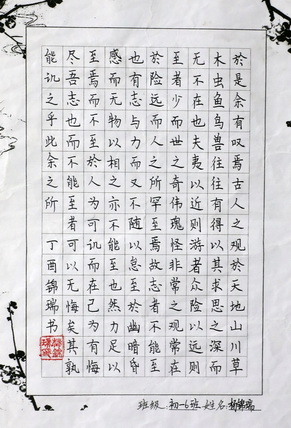 於是余有叹焉古人之观於天地山川草
木虫鱼鸟兽往往有得以其求思之深而
无不在也夫夷以近则游者众险以远则
至者少而世之奇伟瑰怪非常之观常在
於险远而人之所罕至焉故志者不能至
也有志与力而又不随以怠至於幽暗昏
感而无物以相之亦不能至也然力足以
至焉而不至於人为可讥而在己为有悔
尽吾志也而不能至者可以无悔矣其孰
能讥之乎此余之所 丁酉锦瑞书
班级 初一6班 姓名 锦瑞